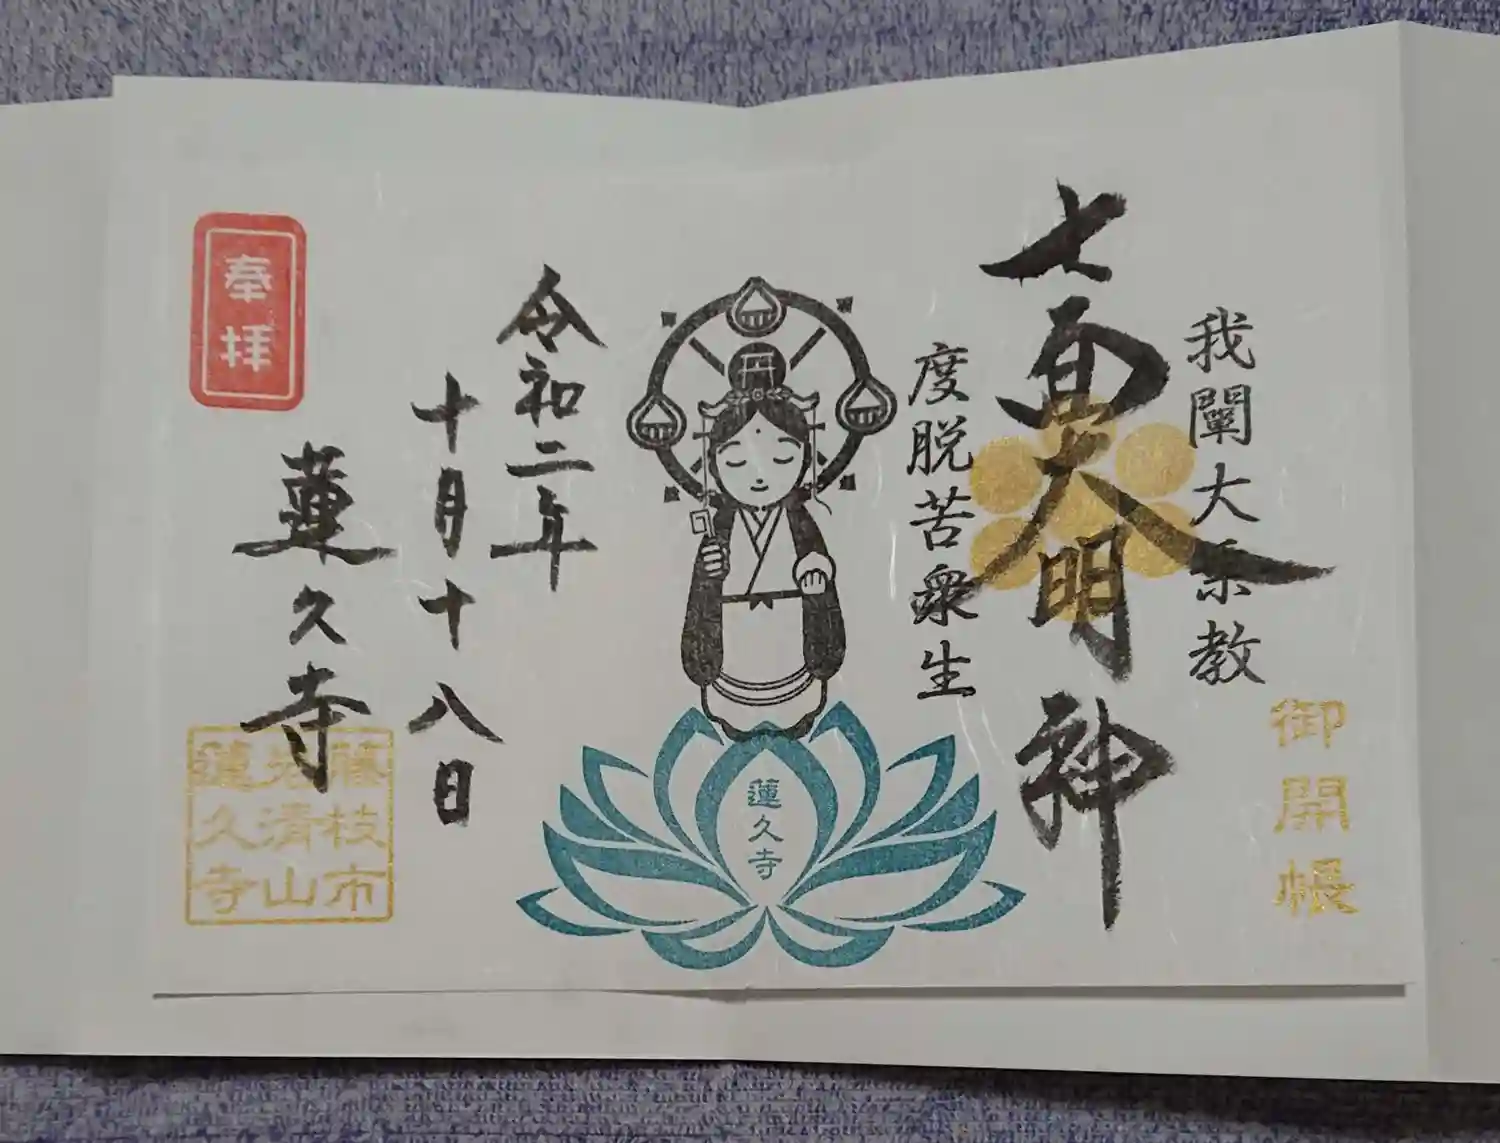 御開帳
我闡大乗教
七面大明神
度脱苦衆生
蓮久寺
令和二年
十月十八日
蓮久寺
奉拝
藤枝市
岩清山
蓮久寺